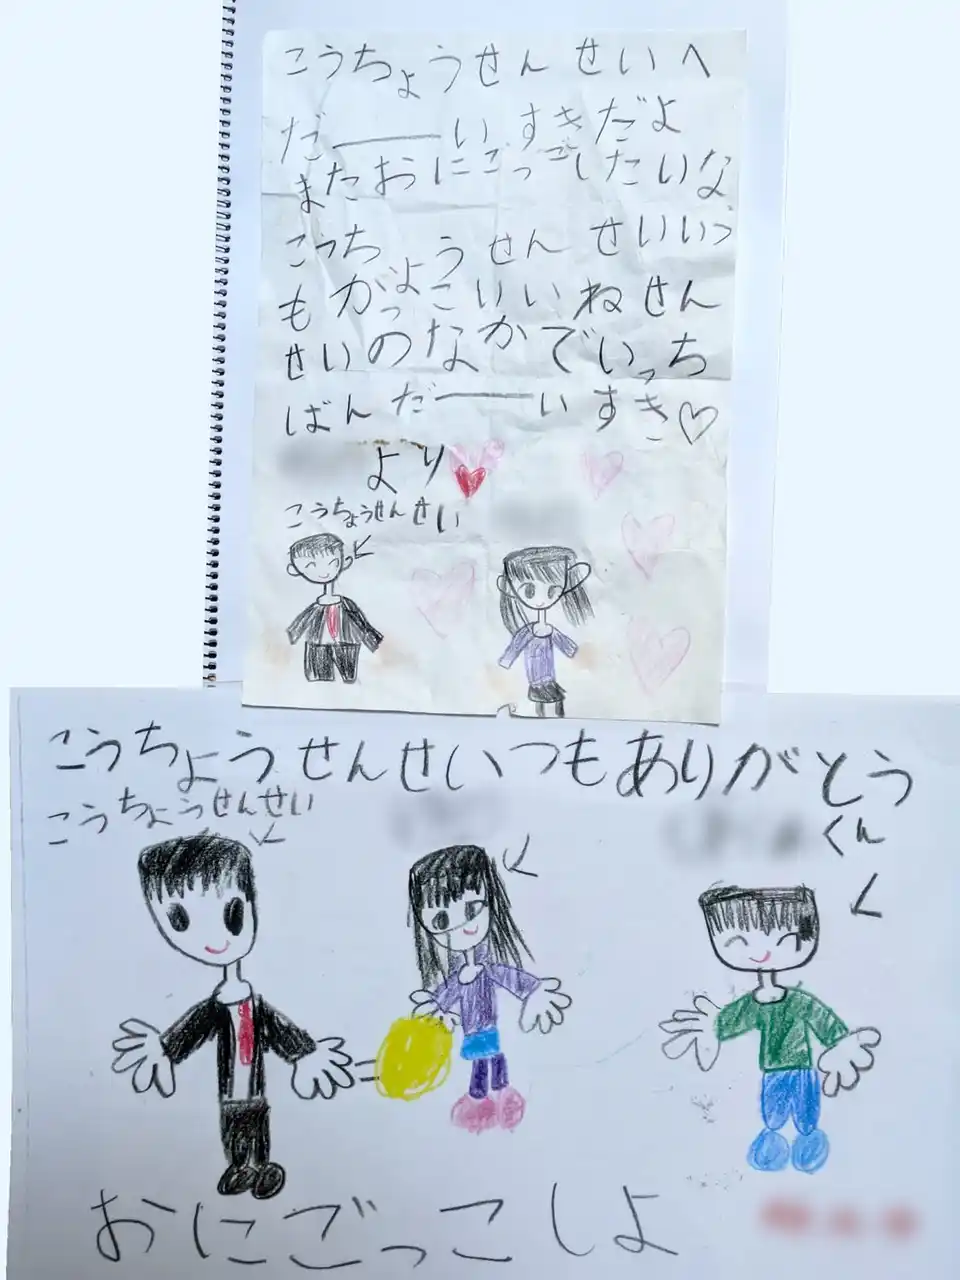 こうちょうせんせいへ
だーーいすきだよ
またおにごっごしたいな
こうちょうせんせいいつ
もがっよこいいねせん
せいのなかでいっち
ばんだーーいすき♡
より
こうちょうせんせい
こうちょうせんせいつもありがとう
こうちょうせんせい
くん
おにごっこしよ